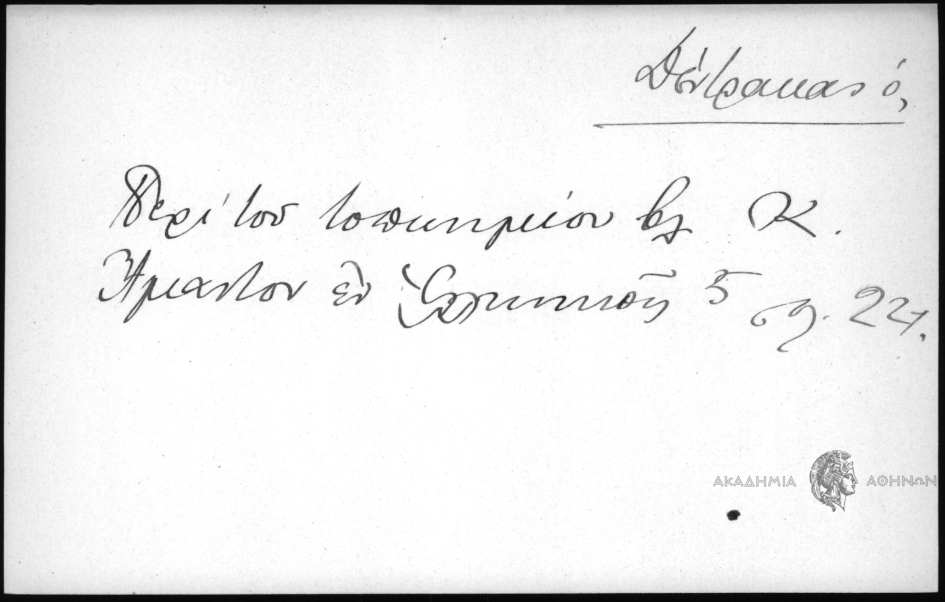 Δέντρακας ὁ,
Περὶ τοῦ τοπωνυμίου βλ Κ.
Ἀμάντου ἐν Ἑλληνικοῖς 5 σ. 221.
ΑΚΑΔΗΜΙΑ ΑΘΗΝΩΝ